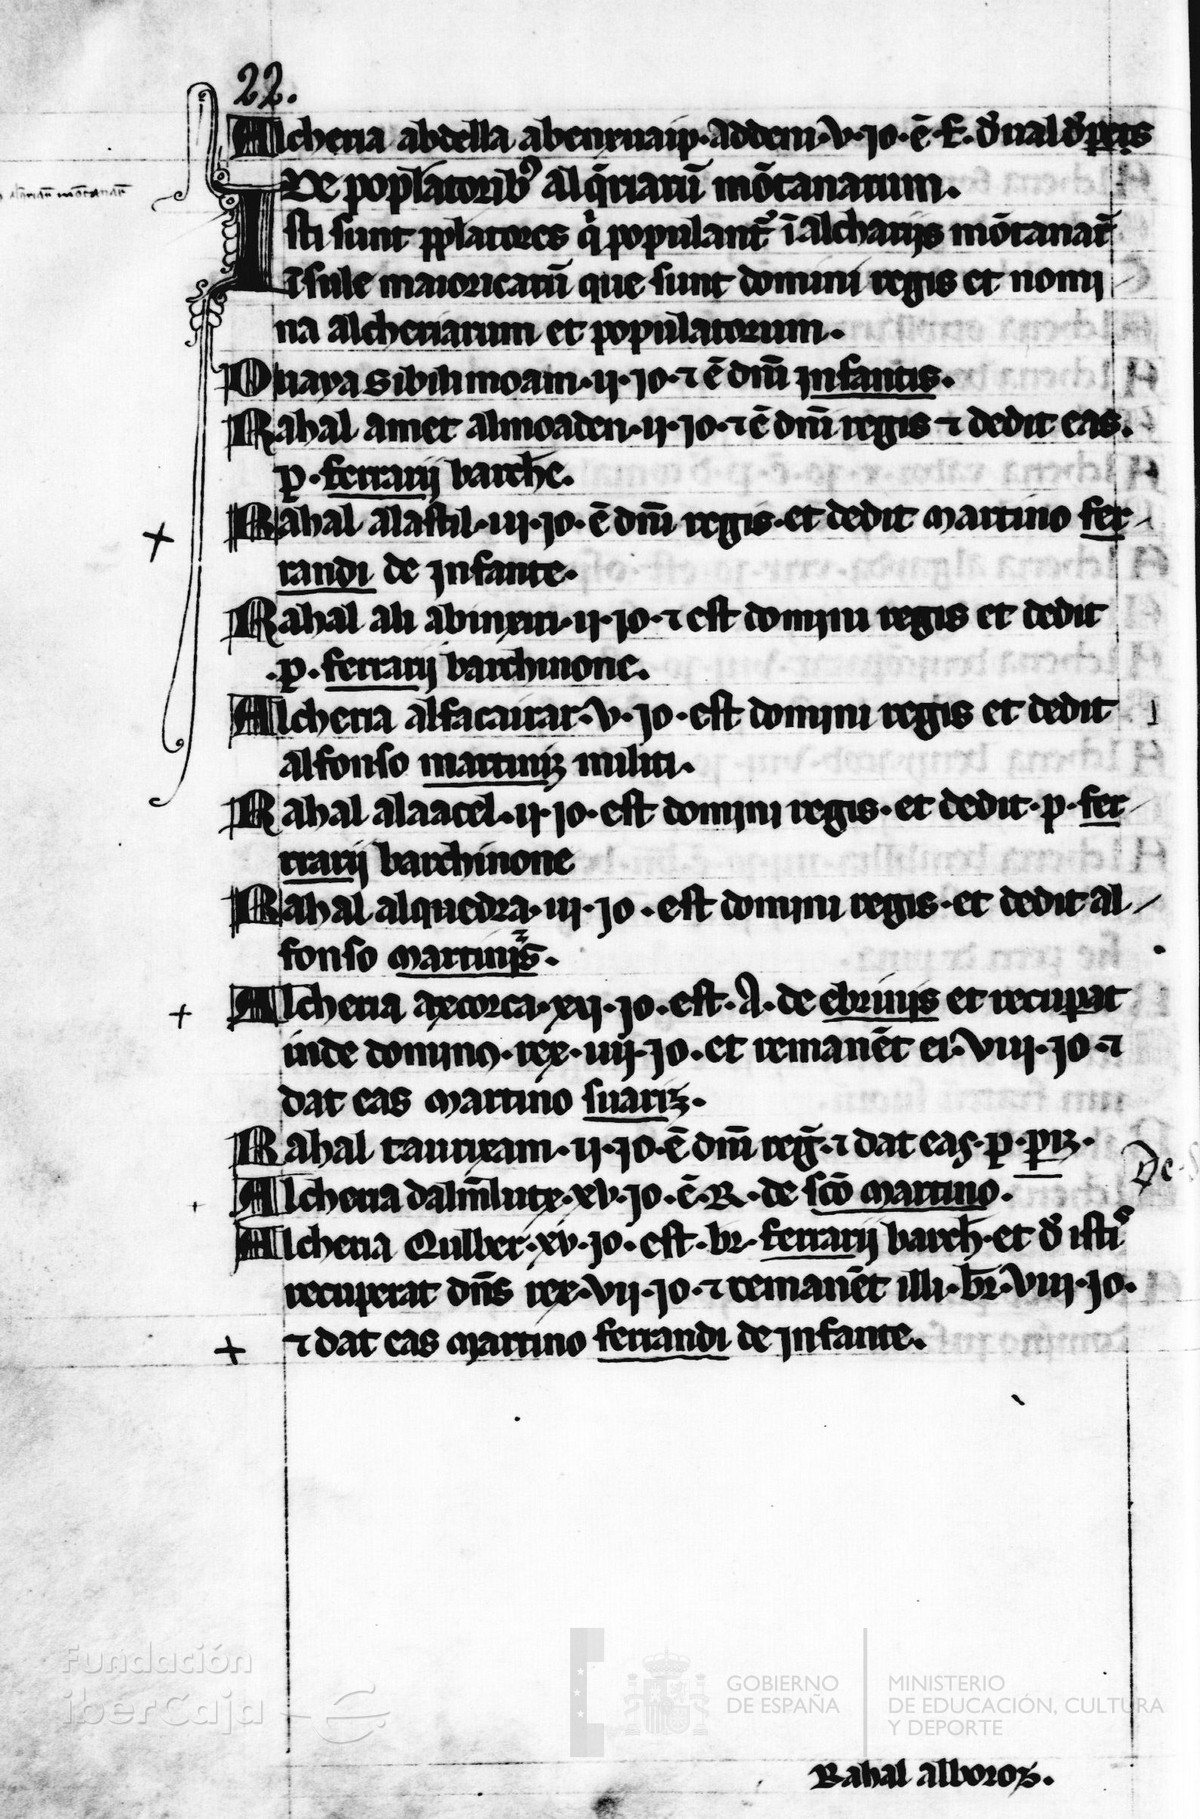 22.
Alcheria abdella abenxuaip. Addem. v. jo. ē. E. đ ual đ peris
De popl̄atorib⁹ alq̄riarū mōtanarum.
Isti sunt pplatores q̇ populant ī alcharijs mōtanar̄
Isule maioricarū que sunt domini regis et nomi
na alcheriarum et populatorum.
Ouaya Sibili moam. ij. jo. ⁊ ē dn̄i infantis.
Rahal amet almoaden. ij. jo. ⁊ ē dn̄i regis ⁊ dedit eas.
p. ferrarij barch̄e.
Rahal alastil. iij. jo. ē dn̄i regis. et dedit martino fer
randi de jnfante.
Rahal ali abinxiri. ij. jo. ⁊ est domini regis et dedit
.p. ferrarij barchinone.
Alcheria alfacairar. v. jo. est domini regis et dedit
alfonso martiniz militi.
Rahal alaacel. ij. jo. est domini regis. et dedit. p. fer
rrarij barchinone
Rahal alquedra. iij. jo. est domini regis. et dedit al
fonso martinijs.
Alcheria axcorca. xij. jo. est. A. de ebrinijs et recupat
inde domin⁹. rex. iiij. jo. et remanēt ei. viij. jo. ⁊
dat eas martino suariz.
Rahal taurixam. ij. jo. ē dn̄i reḡ. ⁊ dat eas. p. piz.
Alcheria dalm̄lutx. xv. jo. ē. R. de sc̄o martino.
Alcheria Qulber. xv. jo. est. br. ferrarij barch̄. et đ isti^s
recuperat dn̄s rex. vij. jo. ⁊ remanēt illi. br̄. viij. jo.
⁊ dat eas martino ferrandi de jnfante.
De
Fundación
iberCaja
GOBIERNO
DE ESPAÑA
MINISTERIO
DE EDUCACIÓN, CULTURA
Y DEPORTE
Rahal alboroz.